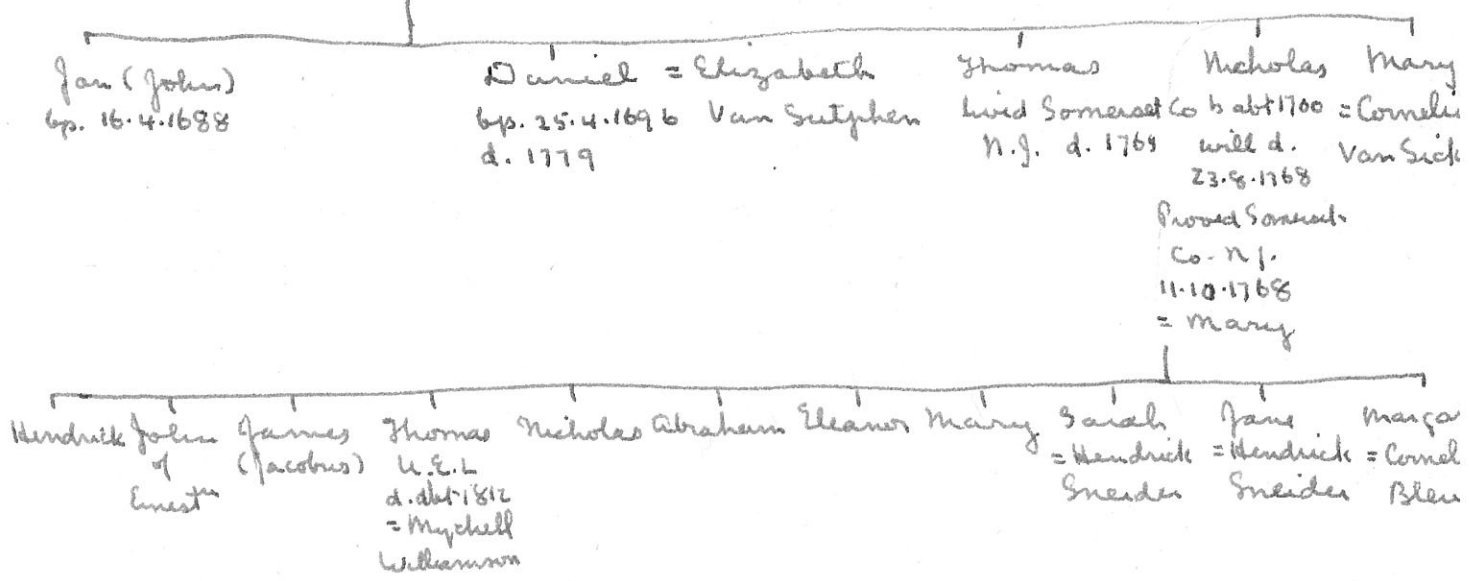 Jan (John)
bp. 16.4.1688
Daniel = Elizabeth
bp. 25.4.1696 Van Sutphen
d. 1779
Thomas
lived Somerset Co
N.J. d. 1769
Nicholas
b abt 1700
will d.
23.8.1768
Proved Somerset
Co. N.J.
11.10.1768
= Mary
Mary
= Corneli
Van Sick
Hendrick
John
of
James
(Jacobus)
Thomas
U.E.L
d. abt 1812
= Mychell
Williamson
Nicholas
Abraham
Eleanor
Mary
Sarah
= Hendrick
Sneider
Jane
= Hendrick
Sneider
Margar
= Cornel
Blew